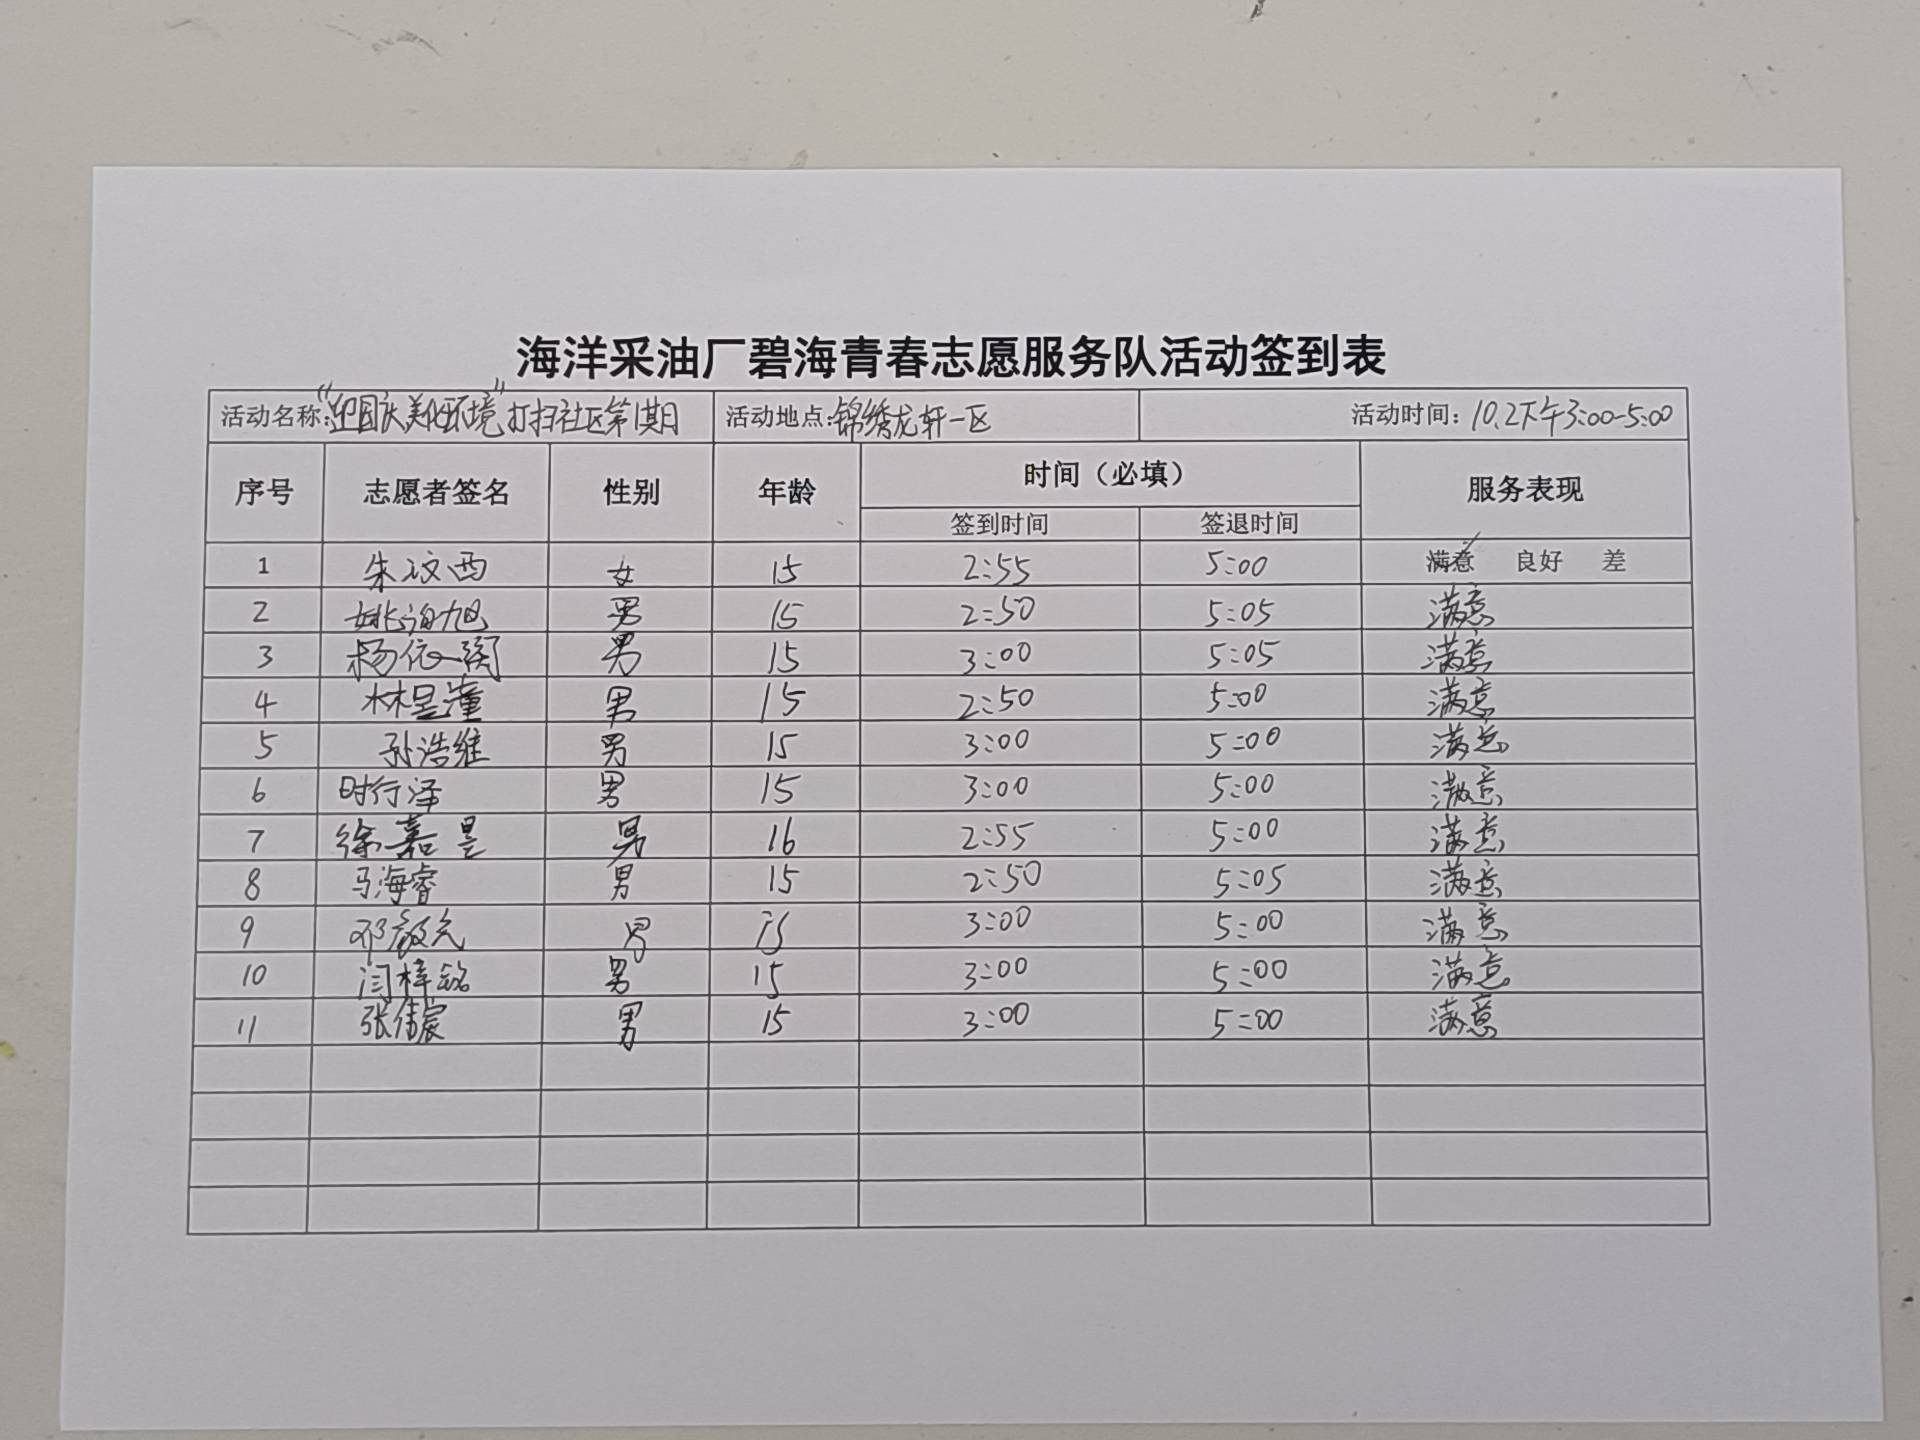 海洋采油厂碧海青春志愿服务队活动签到表
活动名称:“迎国庆美化环境”打扫社区第1期 活动地点:锦绣龙轩一区 活动时间:10.2下午3:00-5:00
序号 志愿者签名 性别 年龄 时间（必填） 服务表现
签到时间 签退时间
1 朱汶西 女 15 2:55 5:00 满意 良好 差
2 姚 旭 男 15 2:50 5:05 满意
3 杨依 男 15 3:00 5:05 满意
4 林昱潼 男 15 2:50 5:00 满意
5 孙浩维 男 15 3:00 5:00 满意
6 时行泽 男 15 3:00 5:00 满意
7 徐嘉昱 男 16 2:55 5:00 满意
8 马海睿 男 15 2:50 5:05 满意
9 邓 元 男 15 3:00 5:00 满意
10 闫梓铭 男 15 3:00 5:00 满意
11 张倩宸 男 15 3:00 5:00 满意